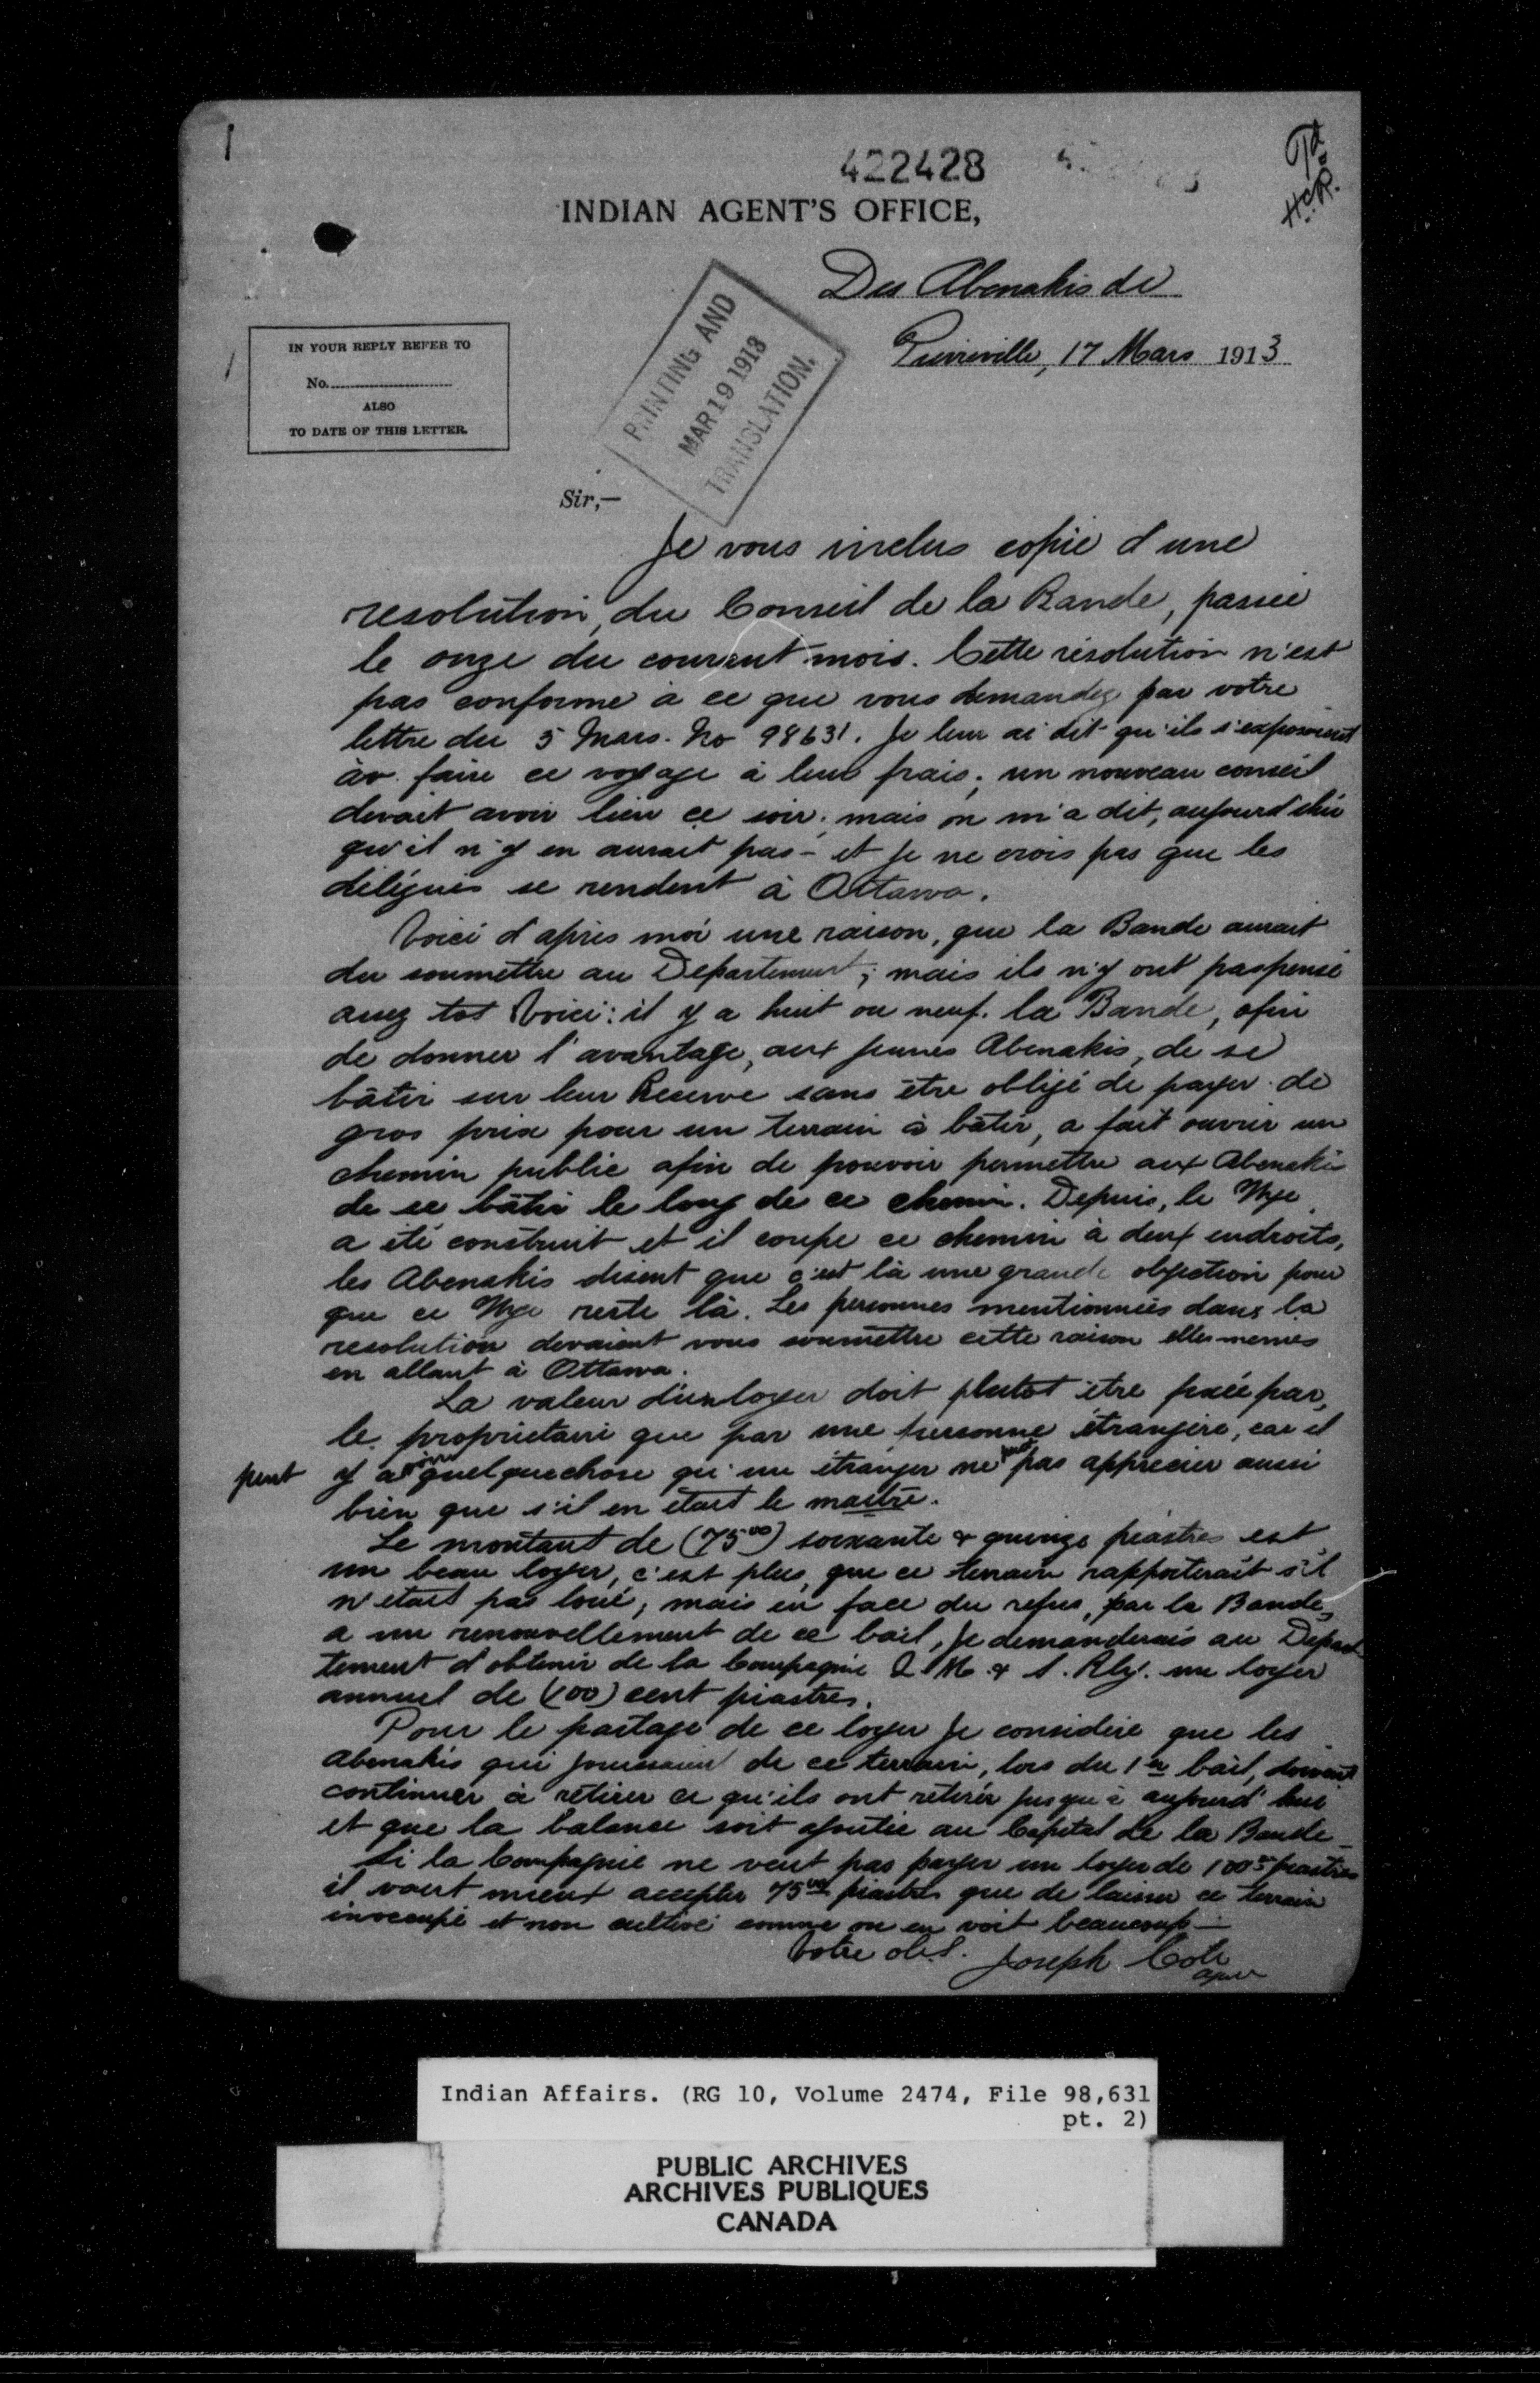 1
422428
Pd
H.C.R.
INDIAN AGENT'S OFFICE,
Des Abenakis de
Pierreville, 17 Mars 1913
IN YOUR REPLY REFER TO
No.
ALSO
TO DATE OF THIS LETTER.
PRINTING AND
MAR 19 1913
TRANSLATION.
Sir,—
Je vous inclus copie d'une
resolution, du Conseil de la Bande, passée
le onze du courant mois. Cette résolution n'est
pas conforme à ce que vous demandez par votre
lettre du 5 Mars. No 98631. Je leur ai dit qu'ils s'exposaient
à faire ce voyage à leurs frais; un nouveau conseil
devait avoir lieu ce soir; mais on m'a dit, aujourd'hui
qu'il n'y en aurait pas - et je ne crois pas que les
délégués se rendent à Ottawa.
Voici d'après moi une raison, que la Bande aurait
du soumettre au Departement; mais ils n'y ont pas pensé
assez tot Voici: il y a huit ou neuf. la Bande, afin
de donner l'avantage, aux jeunes Abenakis, de se
bâtir sur leur Reserve sans être obligé de payer de
gros prix pour un terrain à bâtir, a fait ouvrir un
chemin public afin de pouvoir permettre aux Abenakis
de se bâtir le long de ce chemin. Depuis, le Wye
a été construit et il coupe ce chemin à deux endroits,
les Abenakis disent que c'est là une grande objection pour
que ce Wye reste là. Les personnes mentionnées dans la
resolution devaient vous soumettre cette raison elles-memes
en allant à Ottawa.
La valeur d'un loyer doit plutot être fixée par,
le proprietaire que par une personne étrangère, car il
peut y avoir quelquechose qu'un étranger ne peut pas apprécier aussi
bien que s'il en était le maitre.
Le montant de (75 00) soixante & quinze piastres est
un beau loyer, c'est plus, que ce terrain rapporterait s'il
n'était pas loué; mais en face du refus, par la Bande,
a un renouvellement de ce bail, je demanderais au Depar-
tement d'obtenir de la Compagnie Q. M. & S. Rly. un loyer
annuel de (100) cent piastres.
Pour le partage de ce loyer Je considère que les
Abenakis qui jouissaient de ce terrain, lors du 1er bail, doivent
continuer à retirer ce qu'ils ont retirer jusqu'à aujourd'hui
et que la balance soit ajoutée au Capital de la Bande -
Si la Compagnie ne veut pas payer un loyer de 100 piastres
il vaut mieux accepter 75 00 piastres que de laisser ce terrain
inoccupé et non cultivé comme on en voit beaucoup -
Votre obt. Joseph Cote
agent
Indian Affairs. (RG 10, Volume 2474, File 98,631
pt. 2)
PUBLIC ARCHIVES
ARCHIVES PUBLIQUES
CANADA